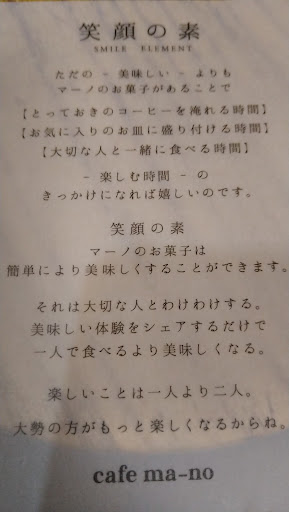 笑顔の素
SMILE ELEMENT
ただの - 美味しい - よりも
マーノのお菓子があることで
【とっておきのコーヒーを淹れる時間】
【お気に入りのお皿に盛り付ける時間】
【大切な人と一緒に食べる時間】
- 楽しむ時間 - の
きっかけになれば嬉しいのです。
笑顔の素
マーノのお菓子は
簡単により美味しくすることができます。
それは大切な人とわけわけする。
美味しい体験をシェアするだけで
一人で食べるより美味しくなる。
楽しいことは一人より二人。
大勢の方がもっと楽しくなるからね。
cafe ma-no